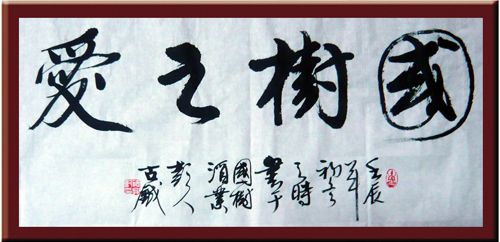 國樹之愛
壬辰
年
初
之時
書于
國樹
酒業
彭人
古